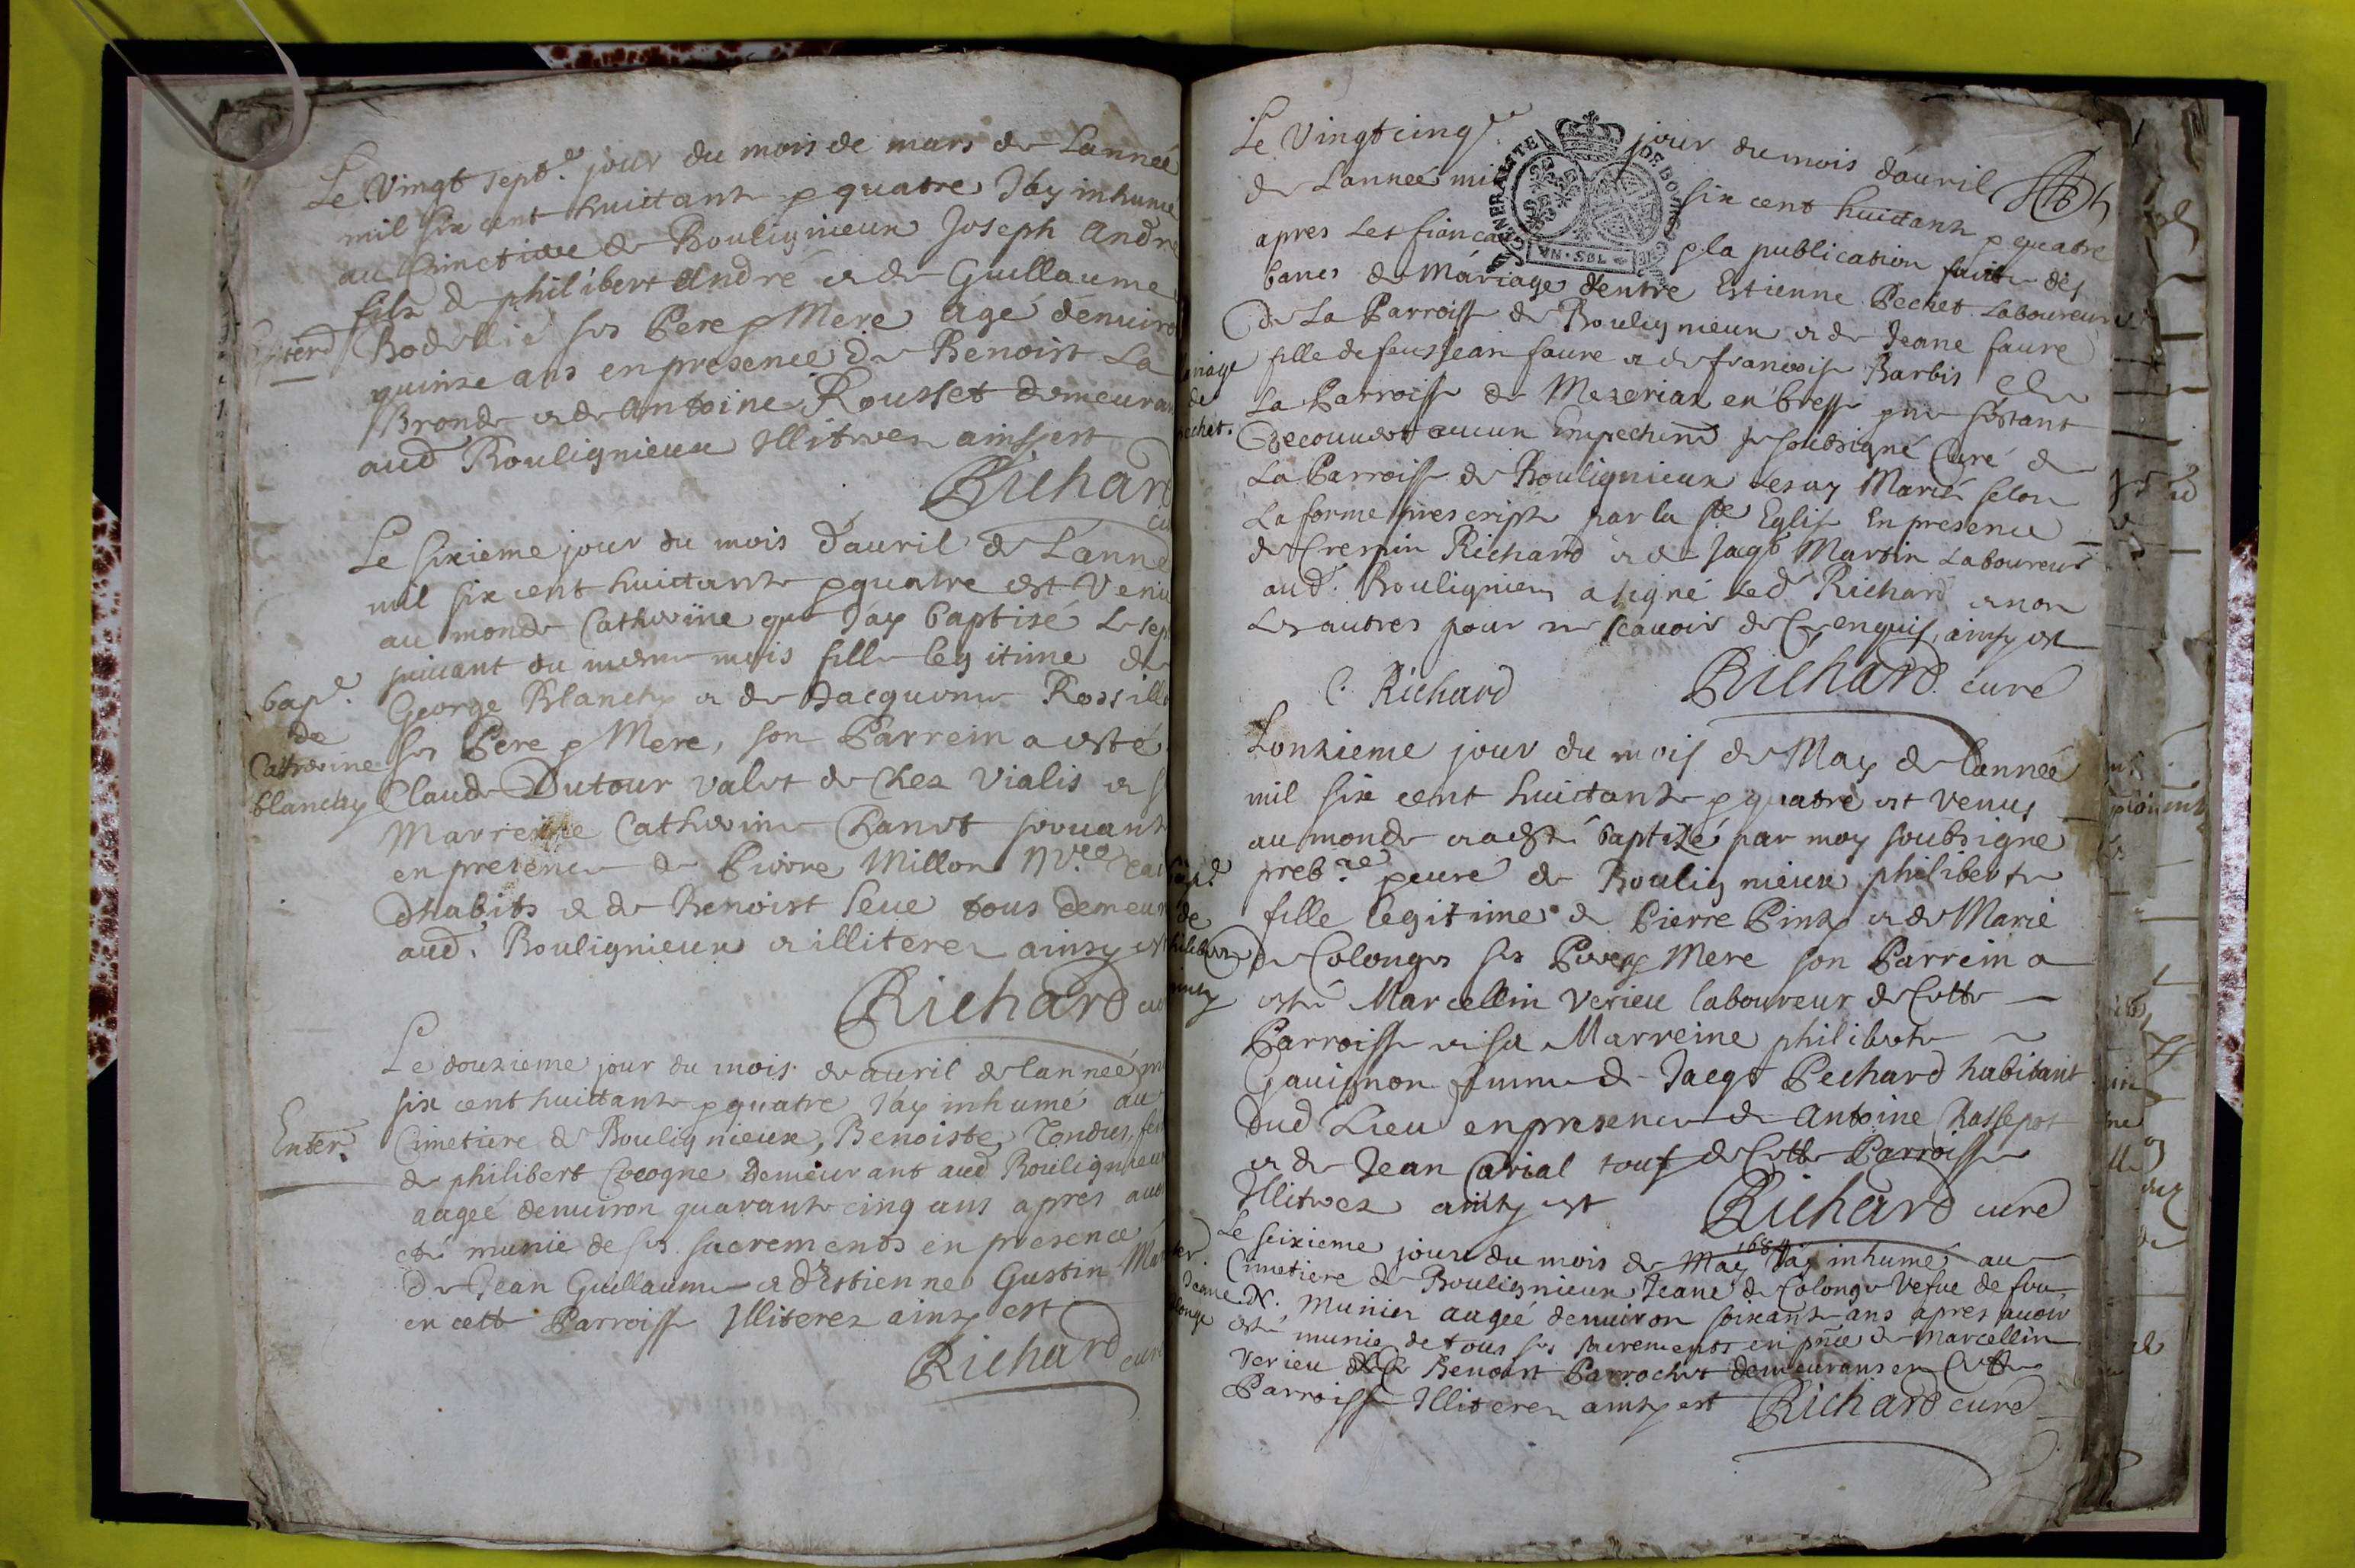 Le Vingt sept.e jour du mois de mars de Lanneé
mil six cent huictante & quatre J'ay inhumé
au Cimetiere de Boulignieux Joseph André
filz de philibert André & de Guillaume
Bodellie ses Pere & Mere agé denuiron
Enterd
quinze ans en presence de Benoist La
Bronde & de Antoine Rousset demeurant
aud Boulignieux Illiterez ainsy est
Richard
Le sixieme jour du mois d'auril de Lanneé
mil six cent huictante & quatre est Venue
au monde Catherine que J'ay baptisé le sept
suiuant du mesme mois fille legitime de
Bap.e
de
Catherine
blanchy
George Blanchy & de Jacqueme Rossill
ses Pere & Mere, son Parrein a esté
Claude Dutour valet de Chez Vialis & sa
Marreine Catherine Chanet seruante
en presence de Pierre Millon
d'habits & de Benoist Seue tous demeur
aud. Boulignieux & illiterez ainsy est
Richard cu
Le douzieme jour du mois de auril de lanneé mil
six cent huictante & quatre J'ay inhumé au
Enter.
Cimetiere de Boulignieux, Benoiste Tondus, fem
de philibert Cocogne demeurant aud Boulignieux
aageé denuiron quarante cinq ans apres auoir
esté munie de ses sacrements en presence
de Jean Guillaume & d'Estienne Gustin
en cette Parroisse Illiterez ainsy est
Richard curé
Le Vingtcinq.e jour du mois d'auril
de Lanneé mil six cent huictante & quatre
GENERALITE DE BOURGOGNE
VN·SOL
apres les fiancailles & la publication faitte des
bancs de Mariage d'entre Estienne Pechet Laboureur
de La Parroisse de Boulignieux & de Jeane faure
Mariage
de
Pechet.
fille de feus Jean faure & de francoise Barbis de
La Parroisse de Mezeriax en bresse & ne s'estant
decouuert aucun Empechem je soubsigné Curé de
La Parroisse de Boulignieux Les ay Mariés selon
La forme prescripte par la ste Eglise En presence
de Crespin Richard & de Jaq Martin Laboureur
aud. Boulignieux a signé led Richard & non
Les autres pour ne scauoir de ce enquis, ainsy est
C. Richard Richard curé
Lonzieme jour du mois de May de lanneé
mil six cent huictante & quatre est Venue
au monde & a esté baptizé par moy soubsigné
Bap.e
de
philiberte
pinty
preb.re & curé de Boulignieux philiberte
fille legitime de Pierre Pinty & de Marie
de Colonges ses Pere & Mere son Parrein a
esté Marcellin Verieu laboureur de Cette
Parroisse & sa Marreine philiberte
Gauignon femme de Jacq Pechard habitant
dud Lieu en presence de Antoine Chassepot
& de Jean Carial tous de Cette Parroisse
Illiterez ainsy est Richard curé
Le seizieme jour du mois de May 1684 J'ay inhumé au
Cimetiere de Boulignieux Jeane de Colonge Vefue de feu
Jeane de
colonge
N. Munier aageé denuiron soixante ans apres auoir
esté munie de tous ses sacrements en pnce de Marcellin
Verieu & de Benoist Parrochet demeurans en Cette
Parroisse Illiterez ainsy est Richard curé